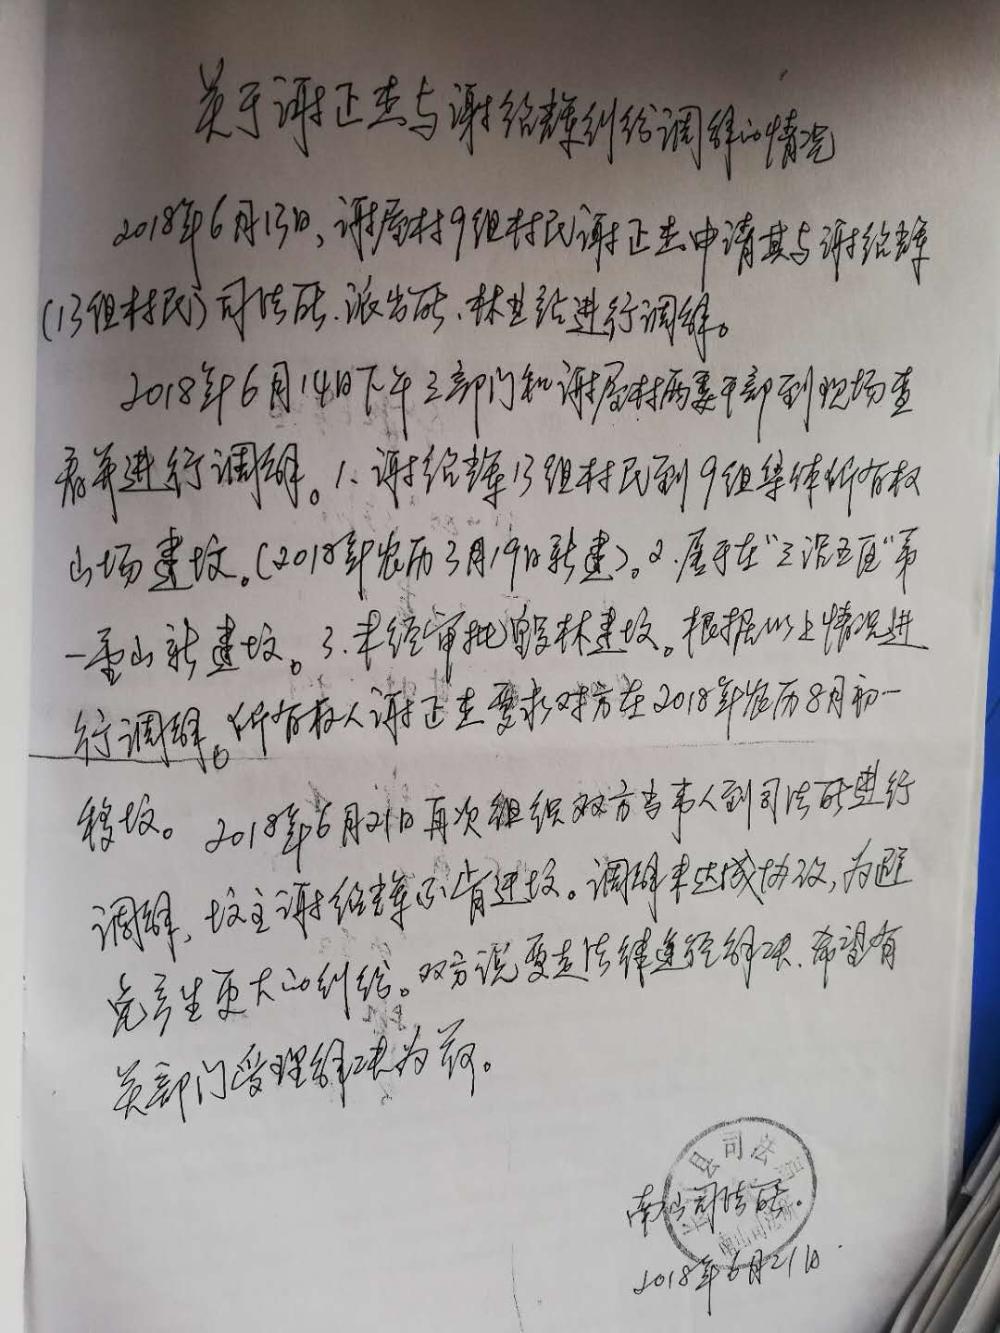 关于谢正杰与谢绍辉纠纷调解的情况
2018年6月13日，谢屋村9组村民谢正杰申请其与谢绍辉
(13组村民)司法所、派出所、林业站进行调解。
2018年6月14日下午三部门和谢屋村两委干部到现场查
看并进行调解。1、谢绍辉13组村民到9组集体所有权
山场建坟。(2018年农历3月19日新建)。2.属于在"三沿五区"第
一重山新建坟。3.未经审批毁林建坟。根据以上情况进
行调解。所有权人谢正杰要求对方在2018年农历8月初一
移坟。2018年6月21日再次组织双方当事人到司法所进行
调解，坟主谢绍辉不肯迁坟。调解未达成协议，为避
免产生更大的纠纷。双方说要走法律途径解决、希望有
关部门受理解决为荷。
县司法局
南山司法所
南山司法所.
2018年6月21日.